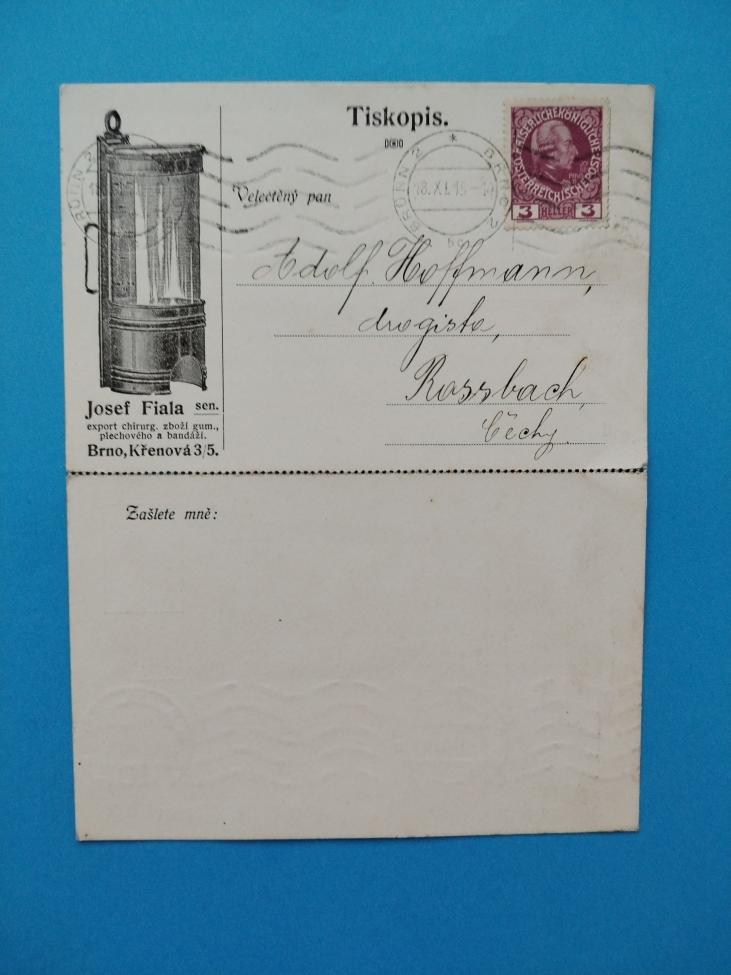 Tiskopis.
KAISERLICHE KÖNIGLICHE
ÖSTERREICHISCHE POST
3 HELLER 3
BRÜNN 2 * BRNO 2
18.XI.15
BRÜNN 2
Velectěný pan
Adolf Hoffmann,
drogista,
Rossbach,
Čechy.
Josef Fiala sen.
export chirurg. zboží gum.,
plechového a bandáží.
Brno, Křenová 3/5.
Zašlete mně: